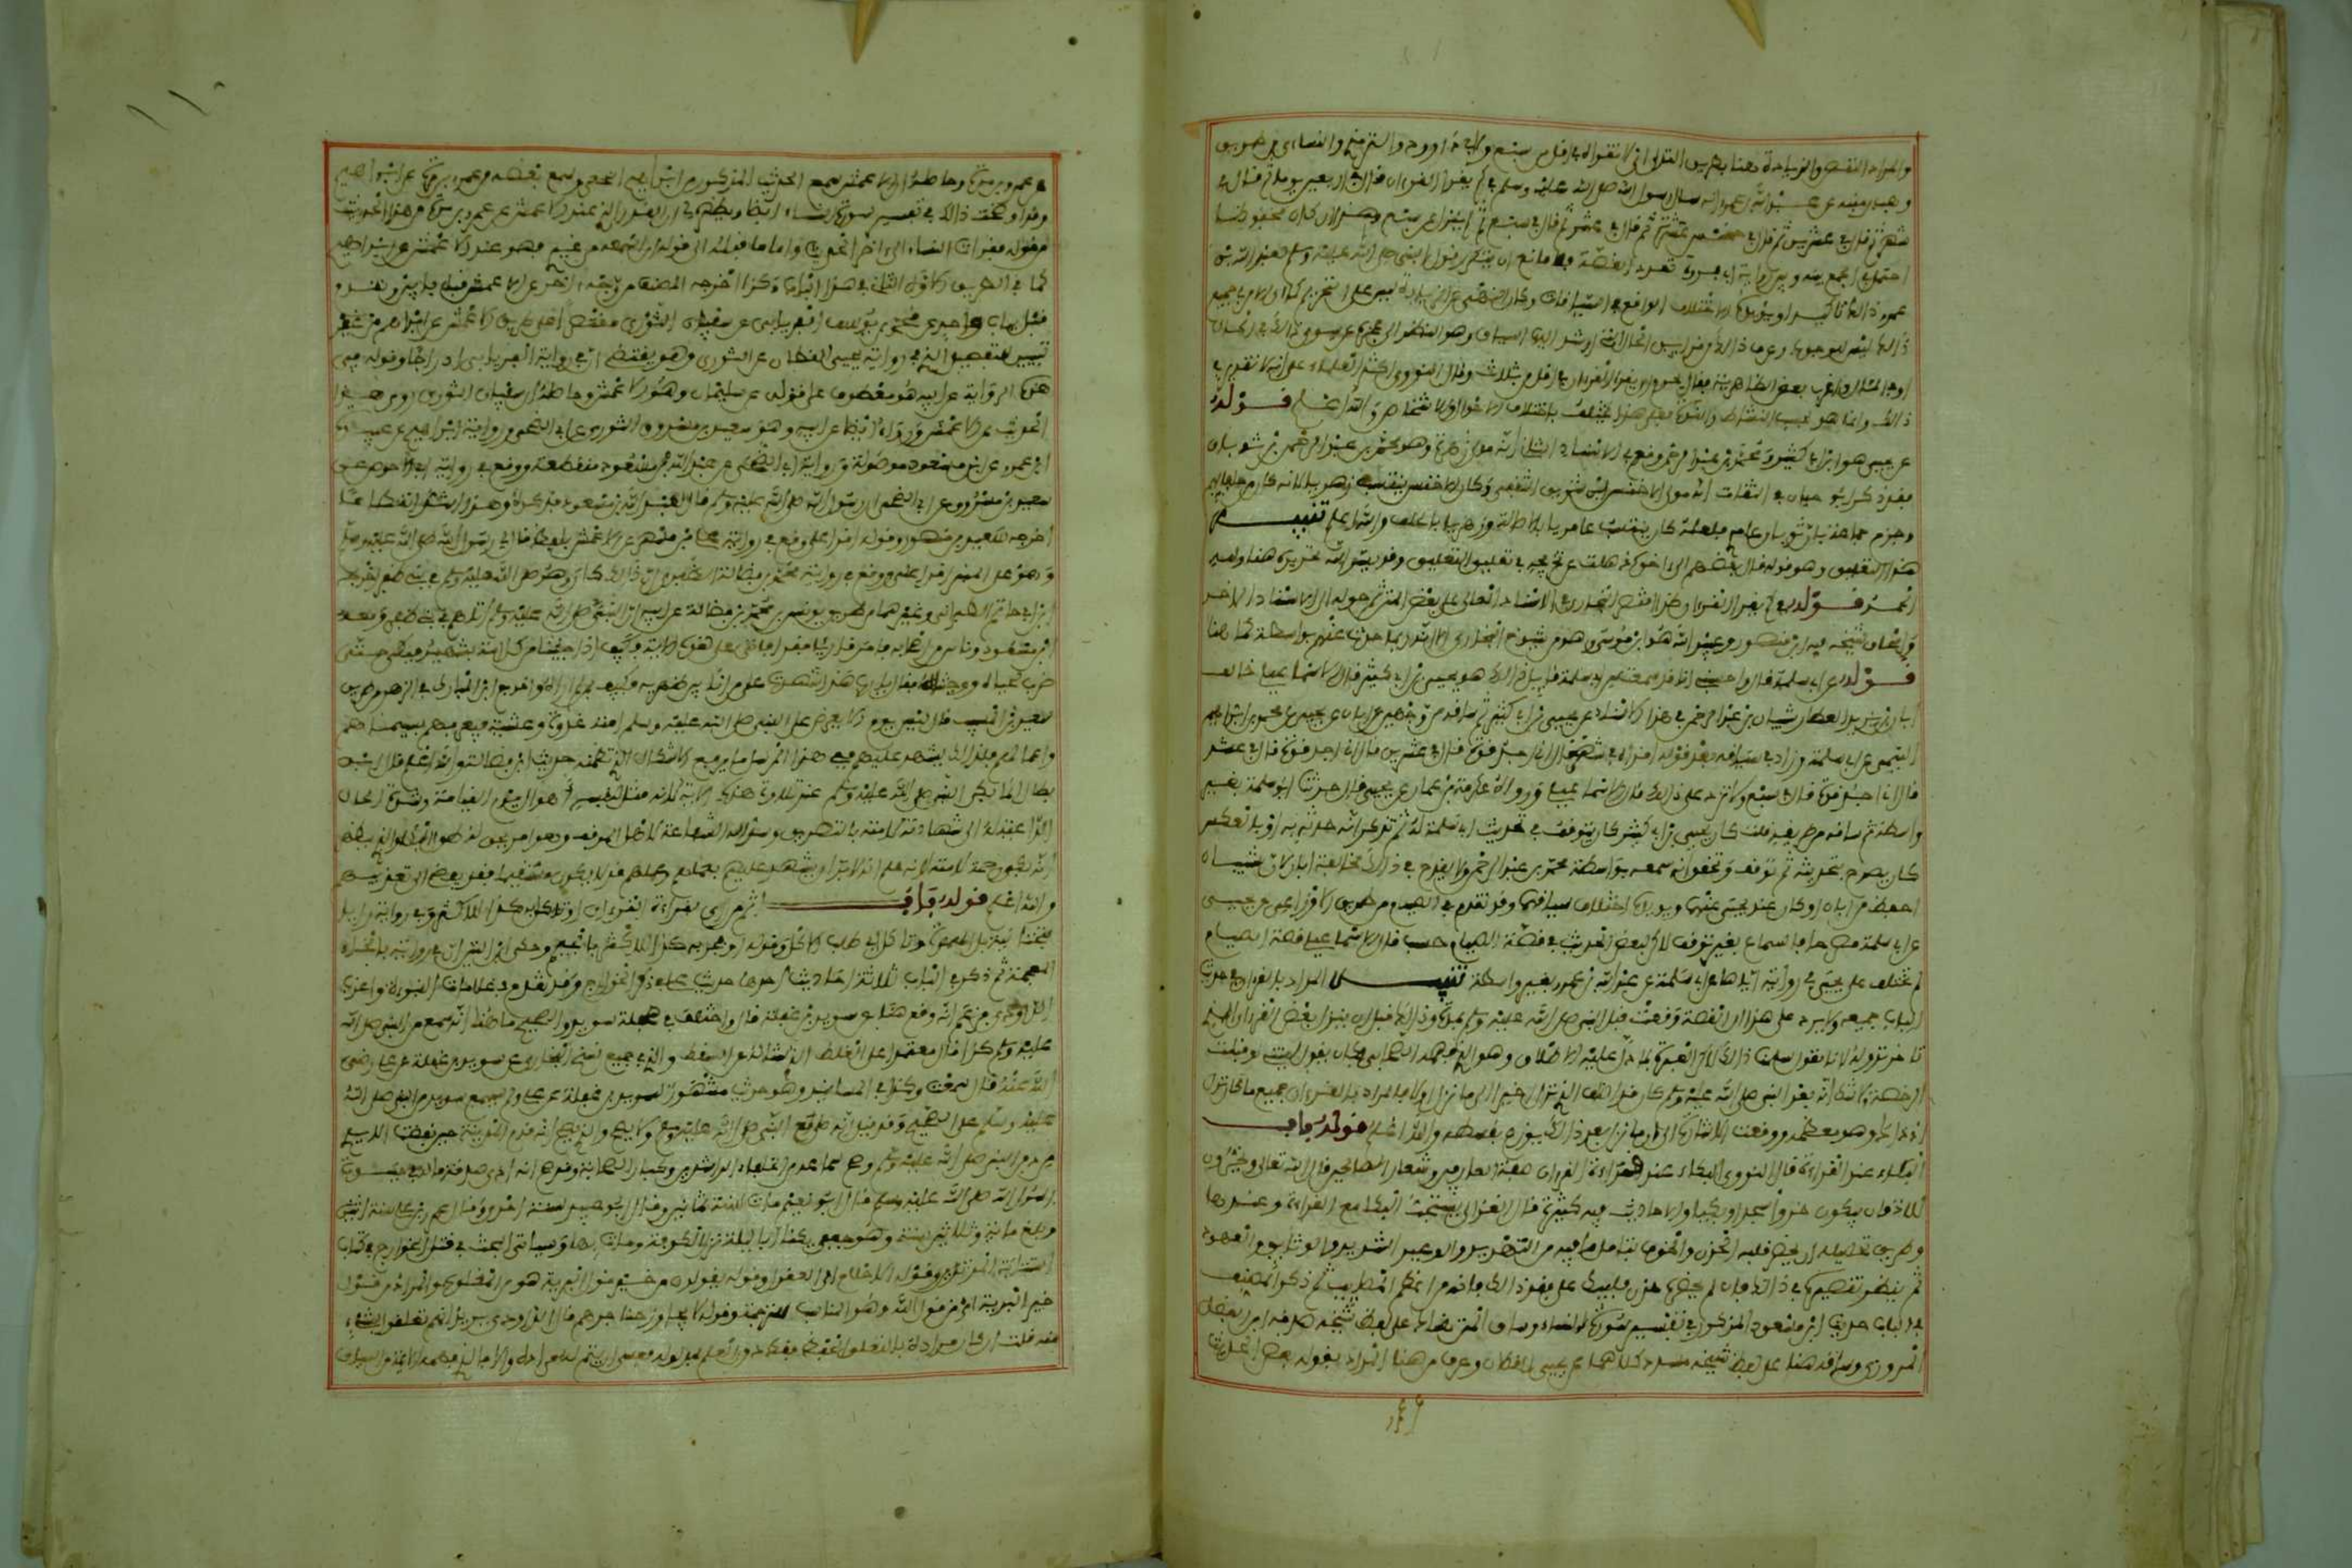 والمراد النقص والزيادة هنا بطريق التدلي اي لا تقراه في اقل من سبع ولابي داوود والترمذي والنساءي من طريق
وهب بن منبه عن عبد الله بن عمرو انه سال رسول الله صلى الله عليه وسلم في كم يقرأ القرءان قال في اربعين يوما ثم قال في
شهر ثم قال في عشرين ثم قال في خمس عشرة ثم قال في عشر ثم قال في سبع ثم لم ينزل عن سبع وهذا ان كان محفوظا
احتمل في الجمع بينه وبين رواية ابي فروة تعدد القصة فلا مانع ان يتعدد قول النبي صلى الله عليه وسلم لعبد الله بن
عمرو ذالك تاكيدا ويؤيده الاختلاف الواقع في السياقات وكان النهي عن الزيادة ليس على التحريم كما ان الامر في جميع
ذالك ليس للوجوب وعرف ذالك من قراين الحال التي ارشد اليها السياق وهو النظر الى عجزه عن سوى ذالك في الحال
او في المئال واغرب بعض الظاهرية فقال يحرم ان يقرأ القرءان في اقل من ثلاث وقال النووي اكثر العلماء على انه لا تقدير في
ذالك وانما هو بحسب النشاط والقوة فعلى هذا يختلف باختلاف الاحوال والاشخاص والله اعلم قوله
عن يحيى هو ابن ابي كثير ومحمد بن عبد الرحمن وقع في الاسناد الثاني انه مولى زهرة وهو محمد بن عبد الرحمن بن ثوبان
فقد ذكر ابن حبان في الثقات انه مولى الاخنس ابن شريق الثقفي وكان الاخنس ينتسب زهريا لانه كان من حلفايهم
وجزم جماعة بان ثوبان عامري فلعله كان ينتسب عامريا بالاصالة وزهريا بالحلف والله اعلم تنبيه
هذا التعليق وهو قوله قال بعضهم الى ءاخره ذهلت عن تخريجه في تعليق التعليق وقد يسر الله تحريره هنا ولله
الحمد قوله في كم يقرأ القرءان كذا اقتصر البخاري في الاسناد العالي على بعض المتن ثم حوله الى الاسناد الاخر
واسحاق شيخه فيه ابن منصور وعبيد الله هو ابن موسى وهو من شيوخ البخاري الا انه ربما حدث عنه بواسطة كما هنا
قوله عن ابي سلمة قال واحسبني انا قد سمعت من ابي سلمة قايل ذالك هو يحيى بن ابي كثير قال الاسماعيلي خالف
ابان بن يزيد العطار شيبان بن عبد الرحمن في هذا الاسناد عن يحيى بن ابي كثير ثم ساقه من وجهين عن ابان عن يحيى عن محمد بن ابراهيم
التيمي عن ابي سلمة وزاد في سياقه بعد قوله اقراه في شهر قال اني اجد قوة قال في عشرين قال اني اجد قوة قال في عشر
قال اني اجد قوة قال في سبع ولا تزد على ذالك قال الاسماعيلي ورواه عكرمة بن عمار عن يحيى قال حدثنا ابو سلمة بغير
واسطة ثم ساقه من طريقه قلت كان يحيى بن ابي كثير كان يتوقف في تحديث ابي سلمة له ثم تذكر انه حدثه به او بالعكس
كان يصرح بتحديثه ثم توقف وتحقق انه سمعه بواسطة محمد بن عبد الرحمن ولا يقدح في ذالك مخالفة ابان لان شيبان
احفظ من ابان او كان عند يحيى عنهما ويؤيده اختلاف سياقهما وقد تقدم في الصيام من طريق الاوزاعي عن يحيى
عن ابي سلمة مصرحا بالسماع بغير توقف لاكن لبعض الحديث في قصة الصيام حسب قال الاسماعيلي قصة الصيام
لم تختلف على يحيى في روايته اياها عن ابي سلمة عن عبد الله بن عمرو بغير واسطة تنبيه المراد بالقرءان في حديث
الباب جميعه ولا يرد على هذا ان القصة وقعت قبل النبي صلى الله عليه وسلم بمدة وذالك قبل ان ينزل بعض القرءان الذي
تاخر نزوله لانا نقول سلمنا ذالك لاكن العبرة بما دل عليه الاطلاق وهو الذي فهمه الصحابي فكان يقول ليتني لو قبلت
الرخصة ولا شك انه بعد النبي صلى الله عليه وسلم كان قد اضاف الذي نزل اخيرا الى ما نزل اولا فالمراد بالقرءان جميع ما كان نزل
اذ ذاك وهو معظمه ووقعت الاشارة الى ان ما نزل بعد ذالك يوزع بقسطه والله اعلم قوله باب
البكاء عند القراءة قال النووي البكاء عند قراءة القرءان صفة العارفين وشعار الصالحين قال الله تعالى ويخرون
للاذقان يبكون خروا سجدا وبكيا والاحاديث فيه كثيرة قال الغزالي يستحب البكا مع القراءة وعندها
وطريق تحصيله ان يحضر قلبه الحزن والخوف بتامل ما فيه من التهديد والوعيد الشديد والوثايق والعهود
ثم ينظر تقصيره في ذالك فان لم يحضره حزن فليبك على فقد ذالك فانه من اعظم المصايب ثم ذكر المصنف
في الباب حديث ابن مسعود المذكور في تفسير سورة النساء وساق المتن هناك على لفظ شيخه صدقة ابن الفضل
المروزي وساقه هنا على لفظ شيخه مسدد كلاهما عن يحيى القطان وعرف من هنا المراد بقوله بعض الحديث
عن عمرو بن مرة وحاصله ان الاعمش سمع الحديث المذكور من ابراهيم النخعي وسمع بعضه من عمرو بن مرة عن ابراهيم
وقد اوضحت ذالك في تفسير سورة النساء ايضا ويظهر لي ان القدر الذي عند الاعمش عن عمرو بن مرة من هذا الحديث
من قوله فقرات النساء الى ءاخر الحديث واما ما قبله الى قوله ان اسمعه من غيري فهو عند الاعمش عن ابراهيم
كما في الطريق الاولى الثانية في هذا الباب وكذا اخرجه المصنف من وجه ءاخر عن الاعمش قبل بابين وتقدم
قبل بباب واحد عن محمد بن يوسف الفريابي عن سفيان الثوري مقتصرا على طريق الاعمش عن ابراهيم من غير
تبيين التفصيل الذي في رواية يحيى القطان عن الثوري وهو يقتضي ان في رواية الفريابي ادراجا وقوله في
هذه الرواية عن ابيه هو معطوف على قوله عن سليمان وهو الاعمش وحاصله ان سفيان الثوري روى هذا
الحديث عن الاعمش ورواه ايضا عن ابيه وهو سعيد بن مسروق الثوري عن ابي الضحى ورواية ابراهيم عن عبيدة
ابن عمرو عن ابن مسعود موصولة ورواية ابي الضحى عن عبد الله بن مسعود منقطعة ووقع في رواية ابي الاحوص عن
سعيد بن مسروق عن ابي الضحى ان رسول الله صلى الله عليه وسلم قال لعبد الله بن مسعود فذكره وهذا اشد انقطاعا
اخرجه سعيد بن منصور وقوله اقرا علي وقع في رواية علي بن مسهر عن الاعمش بلفظ قال لي رسول الله صلى الله عليه وسلم
وهو على المنبر اقرا علي ووقع في رواية محمد بن فضالة الظفري ان ذالك كان وهو صلى الله عليه وسلم في بني ظفر اخرجه
ابن ابي حاتم والطبراني وغيرهما من طريق يونس بن محمد بن فضالة عن ابيه ان النبي صلى الله عليه وسلم اتاهم في بني ظفر ومعه
ابن مسعود وناس من اصحابه فامر قاريا فقرا فاتى على هذه الاية فكيف اذا جئنا من كل امة بشهيد فبكى حتى
ضرب لحياه ووجنتاه فقال يارب هذا شهدت على من انا بين ظهريه فكيف بمن لم اره واخرج ابن المبارك في الزهد من طريق
سعيد بن المسيب قال ليس من يوم الا يعرض على النبي صلى الله عليه وسلم امته غدوة وعشية فيعرفهم بسيماهم
واعمالهم فلذالك يشهد عليهم ففي هذا المرسل ما يرفع الاشكال الذي تضمنه حديث ابن فضالة والله اعلم قال ابن
بطال انما بكى النبي صلى الله عليه وسلم عند تلاوته هذه الاية لانه مثل لنفسه اهوال يوم القيامة وشدة الحال
الداعية له الى شهادته لامته بالتصديق وسؤاله الشفاعة لاهل الموقف وهو امر يحق له طول البكاء والذي يظهر
انه بكى رحمة لامته لانه علم انه لا بد ان يشهد عليهم بعملهم وعملهم قد لا يكون مستقيما فقد يفضي الى تعذيبهم
والله اعلم قوله باب اثم من رءى بقراءة القرءان او تاكل به كذا للاكثر وفي رواية رايا
بتحتانية بدل الهمزة وتاكل اي طلب الاكل وقوله او فخر به كذا للاكثر بالجيم وحكى ابن التين ان في رواية بالخاء
المعجمة ثم ذكر في الباب ثلاثة احاديث احدها حديث علي في ذكر الخوارج وقد تقدم في علامات النبوءة واغرب
الداوودي فزعم انه وقع هنا عن سويد بن غفلة قال واختلف في صحبة سويد والصحيح ما هنا انه سمع من النبي صلى الله
عليه وسلم كذا قال معتمدا على الغلط الذي نشا له عن السقط والذي في جميع نسخ البخاري عن سويد بن غفلة عن علي رضي
الله عنه قال سمعت وكذا في المسانيد وهو حديث مشهور لسويد بن غفلة عن علي ولم يسمع سويد من النبي صلى الله
عليه وسلم على الصحيح وقد قيل انه صلى مع النبي صلى الله عليه وسلم ولا يصح والذي يصح انه قدم المدينة حين نفضت الايدي
من دفن النبي صلى الله عليه وسلم وصح سماعه من الخلفاء الراشدين وكبار الصحابة وصح انه ادى صدقة ماله في حياة
رسول الله صلى الله عليه وسلم قال ابو نعيم مات سنة ثمانين وقال ابو عبيد سنة احدى وقال عمرو بن علي سنة اثنتين
وبلغ ماية وثلاثين سنة وهو جعفي يكنى ابا امية نزل الكوفة ومات بها وسياتي البحث في قتال الخوارج في كتاب
استتابة المرتدين وقوله الاحلام اي العقول وقوله يقولون من خير قول البرية هو من المقلوب والمراد من قول
خير البرية اي من قول الله وهو المناسب للترجمة وقوله لا يجاوز حناجرهم قال الداوودي يريد انهم تعلقوا بشيء
منه قلت ان كان مراده بالتعلق الحفظ فقط دون العلم بمدلوله فعسى ان يتم له مراده والا فالذي فهمه الايمة من السياق